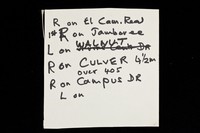 R on El Cam. Real
1st R on Jamboree
L on WALNUT
R on CULVER 4½m
over 405
R on Campus DR
L on